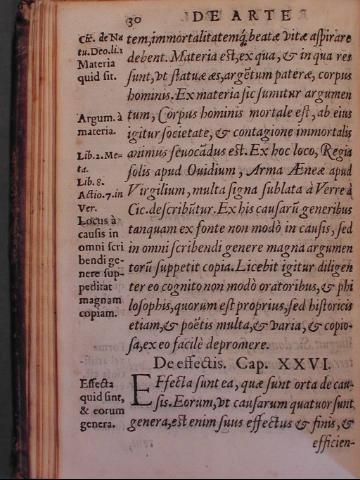 30 DE ARTE
Cic. de Na
tu. Deo. li. 1
Materia
quid sit.
Argum. à
materia.
Lib. 2. Me-
ta.
Lib. 8.
Actio. 7. in
Ver.
Locus à
causis in
omni scri
bendi ge-
nere sup-
peditat
magnam
copiam.
Effecta
quid sint,
& eorum
genera.
tem, immortalitatemq́; beatæ vitæ aspirare
debent. Materia est, ex qua, & in qua res
sunt, vt statuæ æs, argẽtum pateræ, corpus
hominis. Ex materia sic sumitur argumen
tum, Corpus hominis mortale est, ab eius
igitur societate, & contagione immortalis
animus seuocãdus est. Ex hoc loco, Regia
solis apud Ouidium, Arma Æneæ apud
Virgilium, multa signa sublata à Verre à
Cic. describũtur. Ex his causarũ generibus
tanquam ex fonte non modò in causis, sed
in omni scribendi genere magna argumen
torũ suppetit copia. Licebit igitur diligen
ter eo cognito non modò oratoribus, & phi
losophis, quorum est proprius, sed historicis
etiam, & poëtis multa, & varia, & copio-
sa, ex eo facilè depromere.
De effectis. Cap. XXVI.
EFfecta sunt ea, quæ sunt orta de cau-
sis. Eorum, vt causarum quatuor sunt
genera, est enim suus effectus & finis, &
efficien-